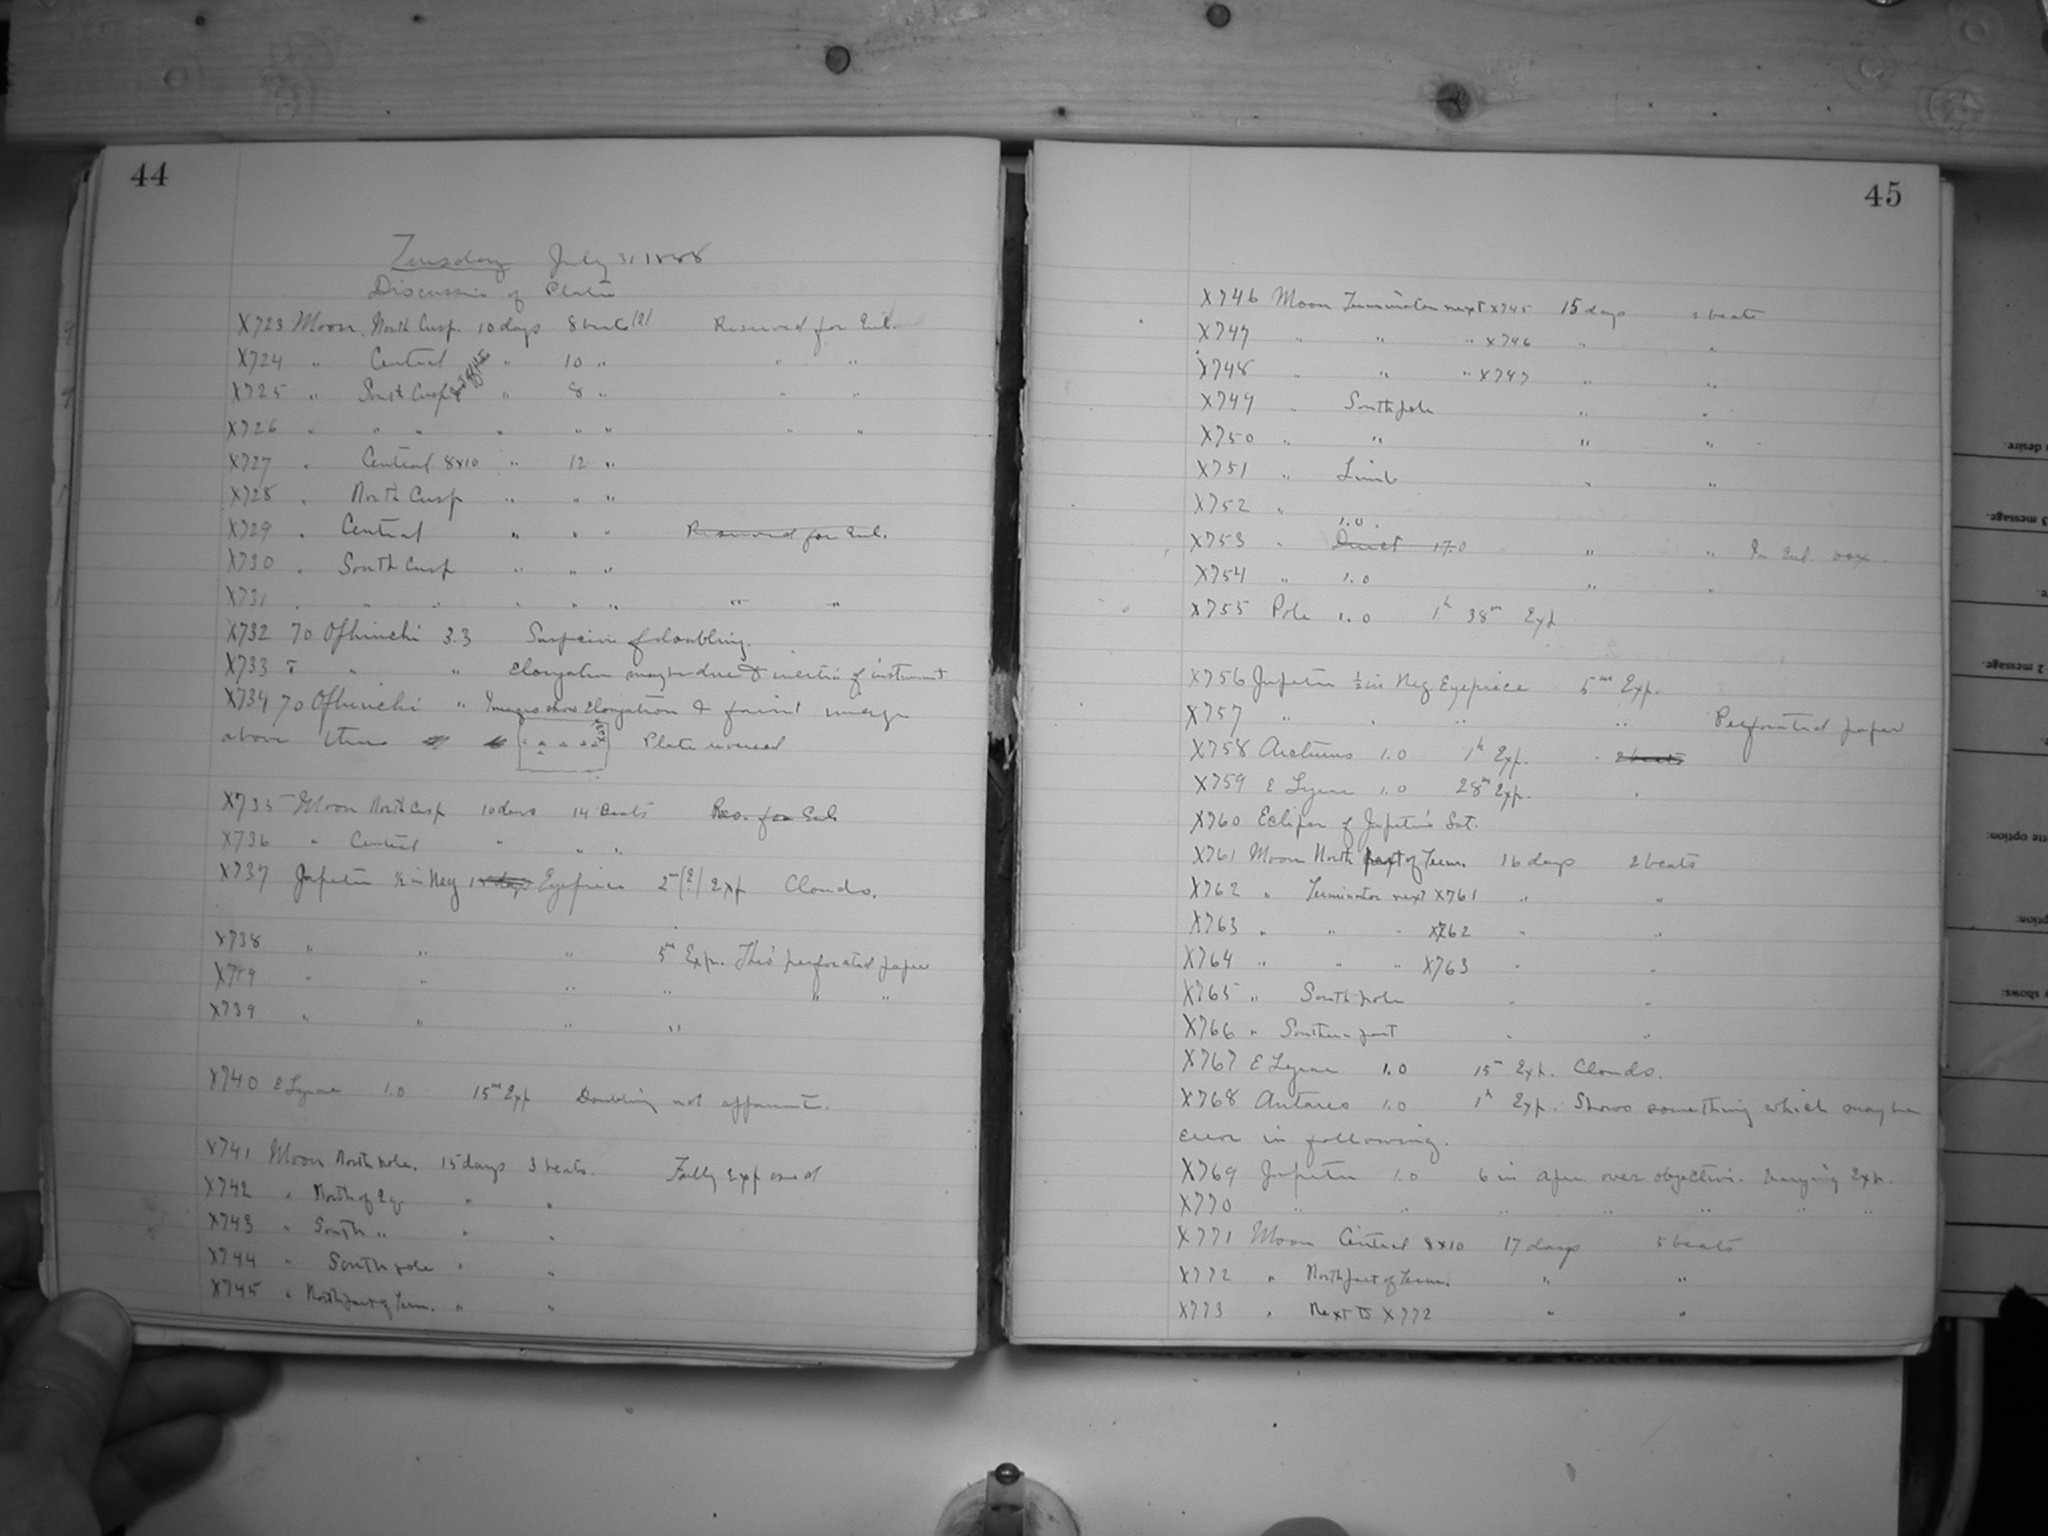 44
Tuesday July 31 1888
Discussion of Plates
X723 Moon North Cusp. 10 days 8 beats (?) Reserved for Enl.
X724 " Central " 10 " " "
X725 " South Cusp " 8 " " "
X726 " " " " " " " "
X727 " Central 8x10 " 12 "
X728 " North Cusp " " "
X729 " Central " " " Reserved for Enl.
X730 " South Cusp " " "
X731 " " " " " " " "
X732 70 Ophiuchi 3.3 Suspicion of doubling.
X733 τ " " Elongation may be due to inertia of instrument
X734 70 Ophiuchi " Images show Elongation & faint image
above Plate reversed
X735 Moon North Cusp 10 days 14 Beats Res. for Enl.
X736 " Central " " "
X737 Jupiter ½ in Neg Eyepiece 2m (?) Exp Clouds.
X738 " " " 5m Exp. Thro' perforated paper
X739 " " " " " "
X739 " " " "
X740 ε Lyrae 1.0 15m Exp Doubling not apparent.
X741 Moon North pole. 15 days 3 beats. Fully Exposed
X742 " North of Eq " "
X743 " South " " "
X744 " South pole " "
X745 " North part of Term. " "
45
X746 Moon Terminator next X745 15 days beats
X747 " " " X746 " "
X748 " " " X747 " "
X749 " South pole " "
X750 " " " "
X751 " Limb " "
X752 "
1.0.
X753 " Direct 17.0 " " In Enl. box.
X754 " 1.0 " "
X755 Pole 1.0 1h 38m Exp
X756 Jupiter ½ in Neg Eyepiece 5m Exp.
X757 " " " " Perforated paper
X758 Arcturus 1.0 1h Exp. 2 beats
X759 ε Lyrae 1.0 28m Exp.
X760 Eclipse of Jupiter's Sat.
X761 Moon North part of Term. 16 days 2 beats
X762 " Terminator next X761 " "
X763 " " " X762 " "
X764 " " " X763 " "
X765 " South pole " "
X766 " Southern part " "
X767 ε Lyrae 1.0 15m Exp. Clouds.
X768 Antares 1.0 1h Exp. Shows something which may be
error in following.
X769 Jupiter 1.0 6 in aper. over objective. Varying Exp.
X770 " " " " " " "
X771 Moon Central 8x10 17 days 5 beats
X772 " North part of Term. " "
X773 " Next to X772 " "